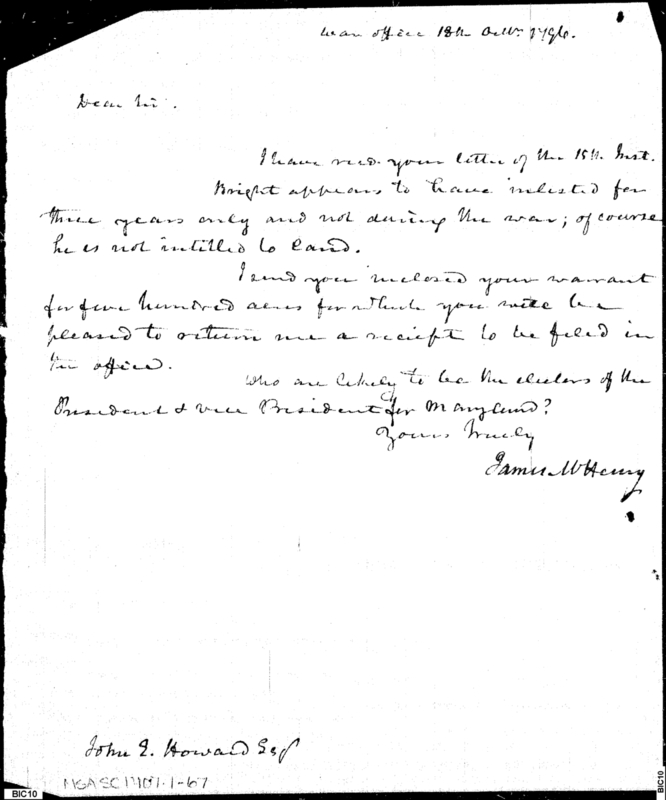 War office 18th Octbr 1796.
Dear Sir.
I have recd. your letter of the 15th. Inst.
Bright appears to have inlested for
three years only and not during the war; of course
he is not intitled to land.
I send you inclosed your warrant
for five hundred acres for which you will be
pleased to return me a reciept to be filed in
the office.
Who are likely to be the electors of the
President & vice President for Maryland?
Yours truely
James McHenry
John E. Howard Esqr
MSA SC 1101.1-67
BIC10
BIC10